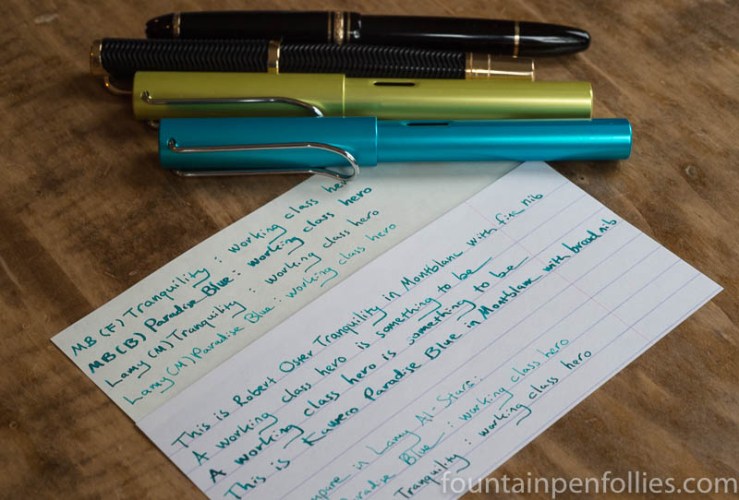 MB (F) Tranquility : working class hero
MB (B) Paradise Blue : working class hero
Lamy (M) Tranquility : working class hero
Lamy (M) Paradise Blue : working class hero
This is Robert Oster Tranquility in Montblanc with fine nib
A working class hero is something to be
A working class hero is something to be
This is Kaweco Paradise Blue in Montblanc with broad nib
in Lamy Al-Stars:
Paradise Blue : working class hero
Tranquility : working class hero
fountainpenfollies.com